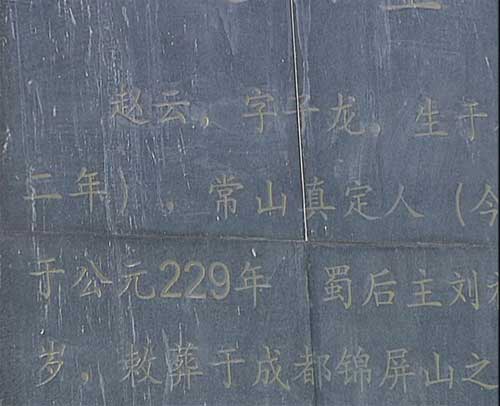 赵云，字子龙，生于
二年），常山真定人（今
于公元229年 蜀后主刘
岁，敕葬于成都锦屏山之